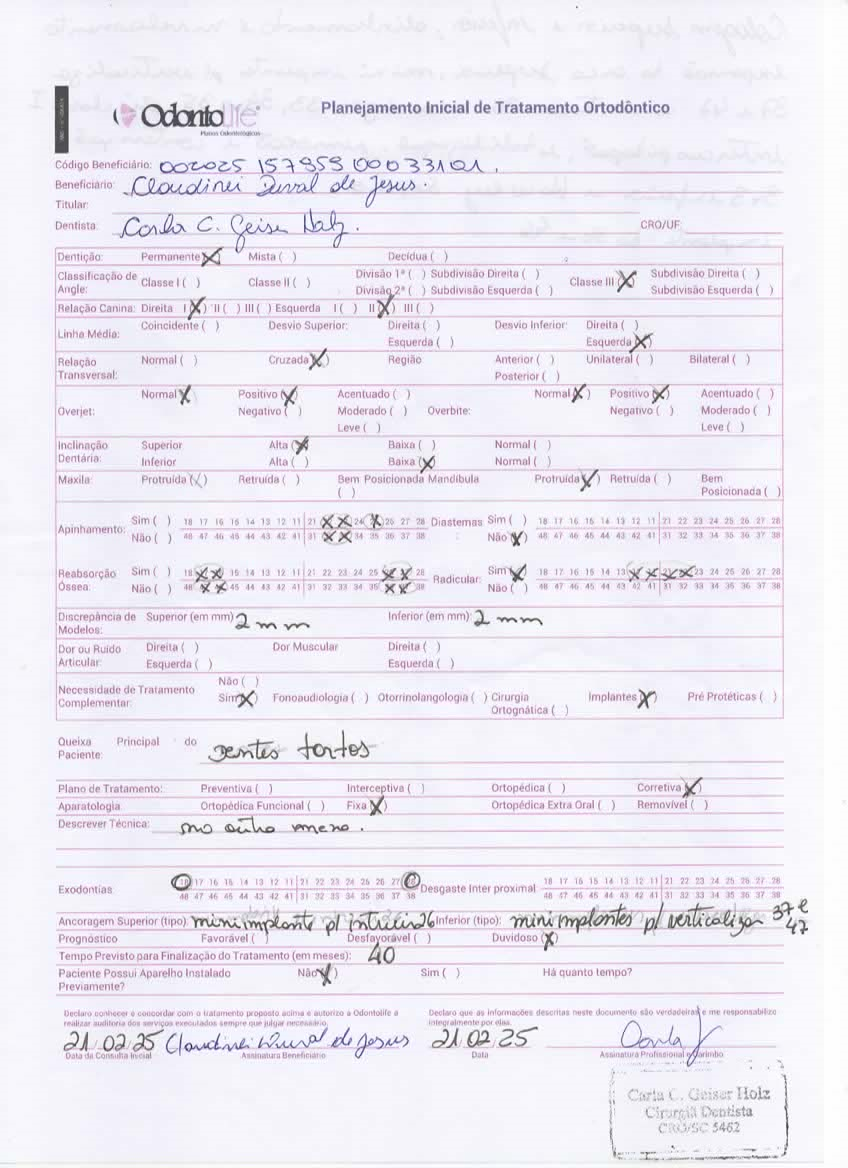 Odontolife
Planos Odontológicos
Planejamento Inicial de Tratamento Ortodôntico
Código Beneficiário: 002025 157959 00033101.
Beneficiário: Claudinei Durval de Jesus.
Titular:
Dentista: Carla C. Geiser Holz. CRO/UF:
Dentição: Permanente (X) Mista ( ) Decídua ( )
Classificação de Angle: Classe I ( ) Classe II ( ) Divisão 1ª ( ) Subdivisão Direita ( ) Classe III (X) Subdivisão Direita ( )
Divisão 2ª ( ) Subdivisão Esquerda ( ) Subdivisão Esquerda ( )
Relação Canina: Direita I (X) II ( ) III ( ) Esquerda I ( ) II (X) III ( )
Linha Média: Coincidente ( ) Desvio Superior: Direita ( ) Desvio Inferior: Direita ( )
Esquerda ( ) Esquerda (X)
Relação Transversal: Normal ( ) Cruzada (X) Região Anterior ( ) Unilateral ( ) Bilateral ( )
Posterior ( )
Overjet: Normal (X) Positivo (X) Acentuado ( ) Overbite: Normal (X) Positivo (X) Acentuado ( )
Negativo ( ) Moderado ( ) Negativo ( ) Moderado ( )
Leve ( ) Leve ( )
Inclinação Dentária: Superior Alta (X) Baixa ( ) Normal ( )
Inferior Alta ( ) Baixa (X) Normal ( )
Maxila: Protruída (X) Retruída ( ) Bem Posicionada ( ) Mandíbula Protruída (X) Retruída ( ) Bem Posicionada ( )
Apinhamento: Sim ( ) 18 17 16 15 14 13 12 11 21 X X 24 X 26 27 28 Diastemas Sim ( ) 18 17 16 15 14 13 12 11 21 22 23 24 25 26 27 28
Não ( ) 48 47 46 45 44 43 42 41 31 X X 34 35 36 37 38 Não (X) 48 47 46 45 44 43 42 41 31 32 33 34 35 36 37 38
Reabsorção Óssea: Sim ( ) 18 X X 15 14 13 12 11 21 22 23 24 25 X X 28 Radicular: Sim (X) 18 17 16 15 14 13 X X X X 23 24 25 26 27 28
Não ( ) 48 X X 45 44 43 42 41 31 32 33 34 35 X X 38 Não ( ) 48 47 46 45 44 43 42 41 31 32 33 34 35 36 37 38
Discrepância de Modelos: Superior (em mm) 2 mm Inferior (em mm): 2 mm
Dor ou Ruído Articular: Direita ( ) Dor Muscular Direita ( )
Esquerda ( ) Esquerda ( )
Necessidade de Tratamento Complementar: Não ( )
Sim (X) Fonoaudiologia ( ) Otorrinolangologia ( ) Cirurgia Ortognática ( ) Implantes (X) Pré Protéticas ( )
Queixa Principal do Paciente: Dentes tortos
Plano de Tratamento: Preventiva ( ) Interceptiva ( ) Ortopédica ( ) Corretiva (X)
Aparatologia Ortopédica Funcional ( ) Fixa (X) Ortopédica Extra Oral ( ) Removível ( )
Descrever Técnica: no outro verso.
Exodontias 18 17 16 15 14 13 12 11 21 22 23 24 25 26 27 28 Desgaste Inter proximal 18 17 16 15 14 13 12 11 21 22 23 24 25 26 27 28
48 47 46 45 44 43 42 41 31 32 33 34 35 36 37 38 48 47 46 45 44 43 42 41 31 32 33 34 35 36 37 38
Ancoragem Superior (tipo): mini implante p/ intruir 26 Inferior (tipo): mini implantes p/ verticalizar 37 e 47
Prognóstico Favorável ( ) Desfavorável ( ) Duvidoso (X)
Tempo Previsto para Finalização do Tratamento (em meses): 40
Paciente Possui Aparelho Instalado Previamente? Não (X) Sim ( ) Há quanto tempo?
Declaro conhecer e concordar com o tratamento proposto acima e autorizo a Odontolife a Declaro que as informações descritas neste documento são verdadeiras e me responsabilizo
realizar auditoria dos serviços executados sempre que julgar necessário. integralmente por elas.
21 02 25 Claudinei Durval de Jesus 21 02 25 Carla
Data da Consulta Inicial Assinatura Beneficiário Data Assinatura Profissional e Carimbo
Carla C. Geiser Holz
Cirurgiã Dentista
CRO/SC 5462